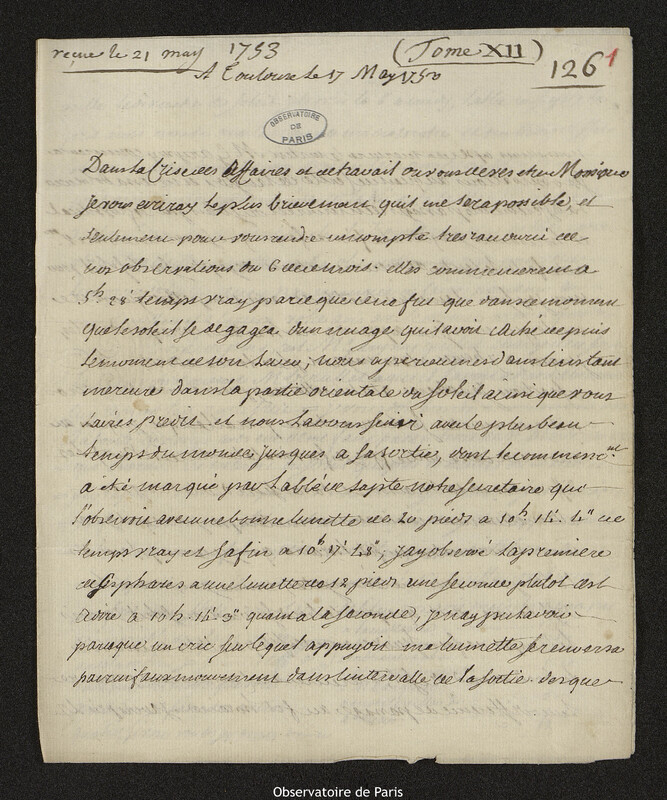 recue le 21 may 1753 (Tome XII)
126 1
A Toulouse le 17 May 1753
OBSERVATOIRE
DE
PARIS
Dans la Crise des affaires et de travail ou vous estes cher Monsieur
je vous ecriray le plus brievement quil me sera possible, et
seulement pour vous rendre un compte tres racourci de
nos observations du 6 de ce mois. elles commencerent a
5h 28' temps vray parce que ce ne fut que dans ce moment
que le soleil se degagea dun nuage qui lavoit caché depuis
le moment de son lever; nous aperceumes dans linstant
mercure dans la partie orientale du soleil ainsi que vous
laviés predit et nous lavons suivi avec le plus beau
temps du monde jusques a sa sortie, dont le commencemt
a été marqué par Labbé de Sapte notre secretaire qui
l'observoit avec une bonne lunette de 20 pieds a 10h 14' 4" de
temps vray et sa fin a 10h 17' 48"; jay observé la premiere
de ces phases a une lunette de 12 pieds une seconde plutot cest
adire a 10h 14' 3" quant a la seconde, je nay peu lavoir
parceque un cric sur lequel appuyoit ma lunette se renversa
par un faux mouvement dans lintervalle de la sortie. des que
Observatoire de Paris